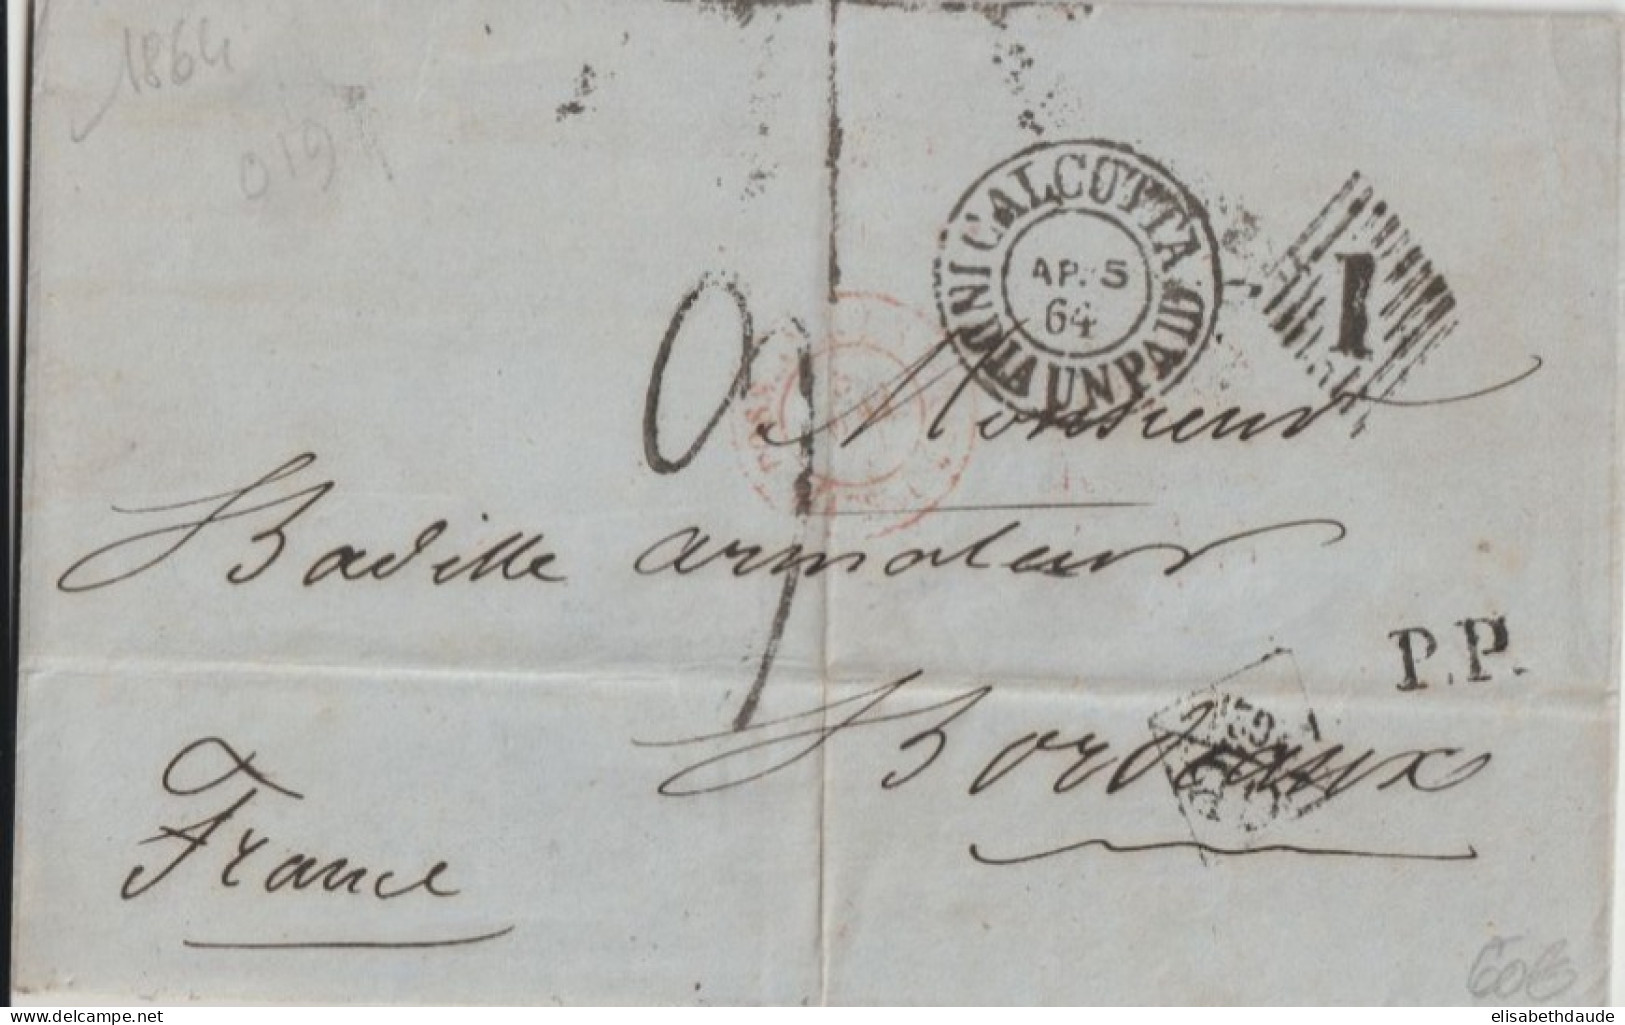 1864
CALCUTTA
AP. 5
64
INDIA UNPAID
1
Monsieur
Badille armateur
P.P.
Bordeaux
France
60€
www.delcampe.net
elisabethdaude